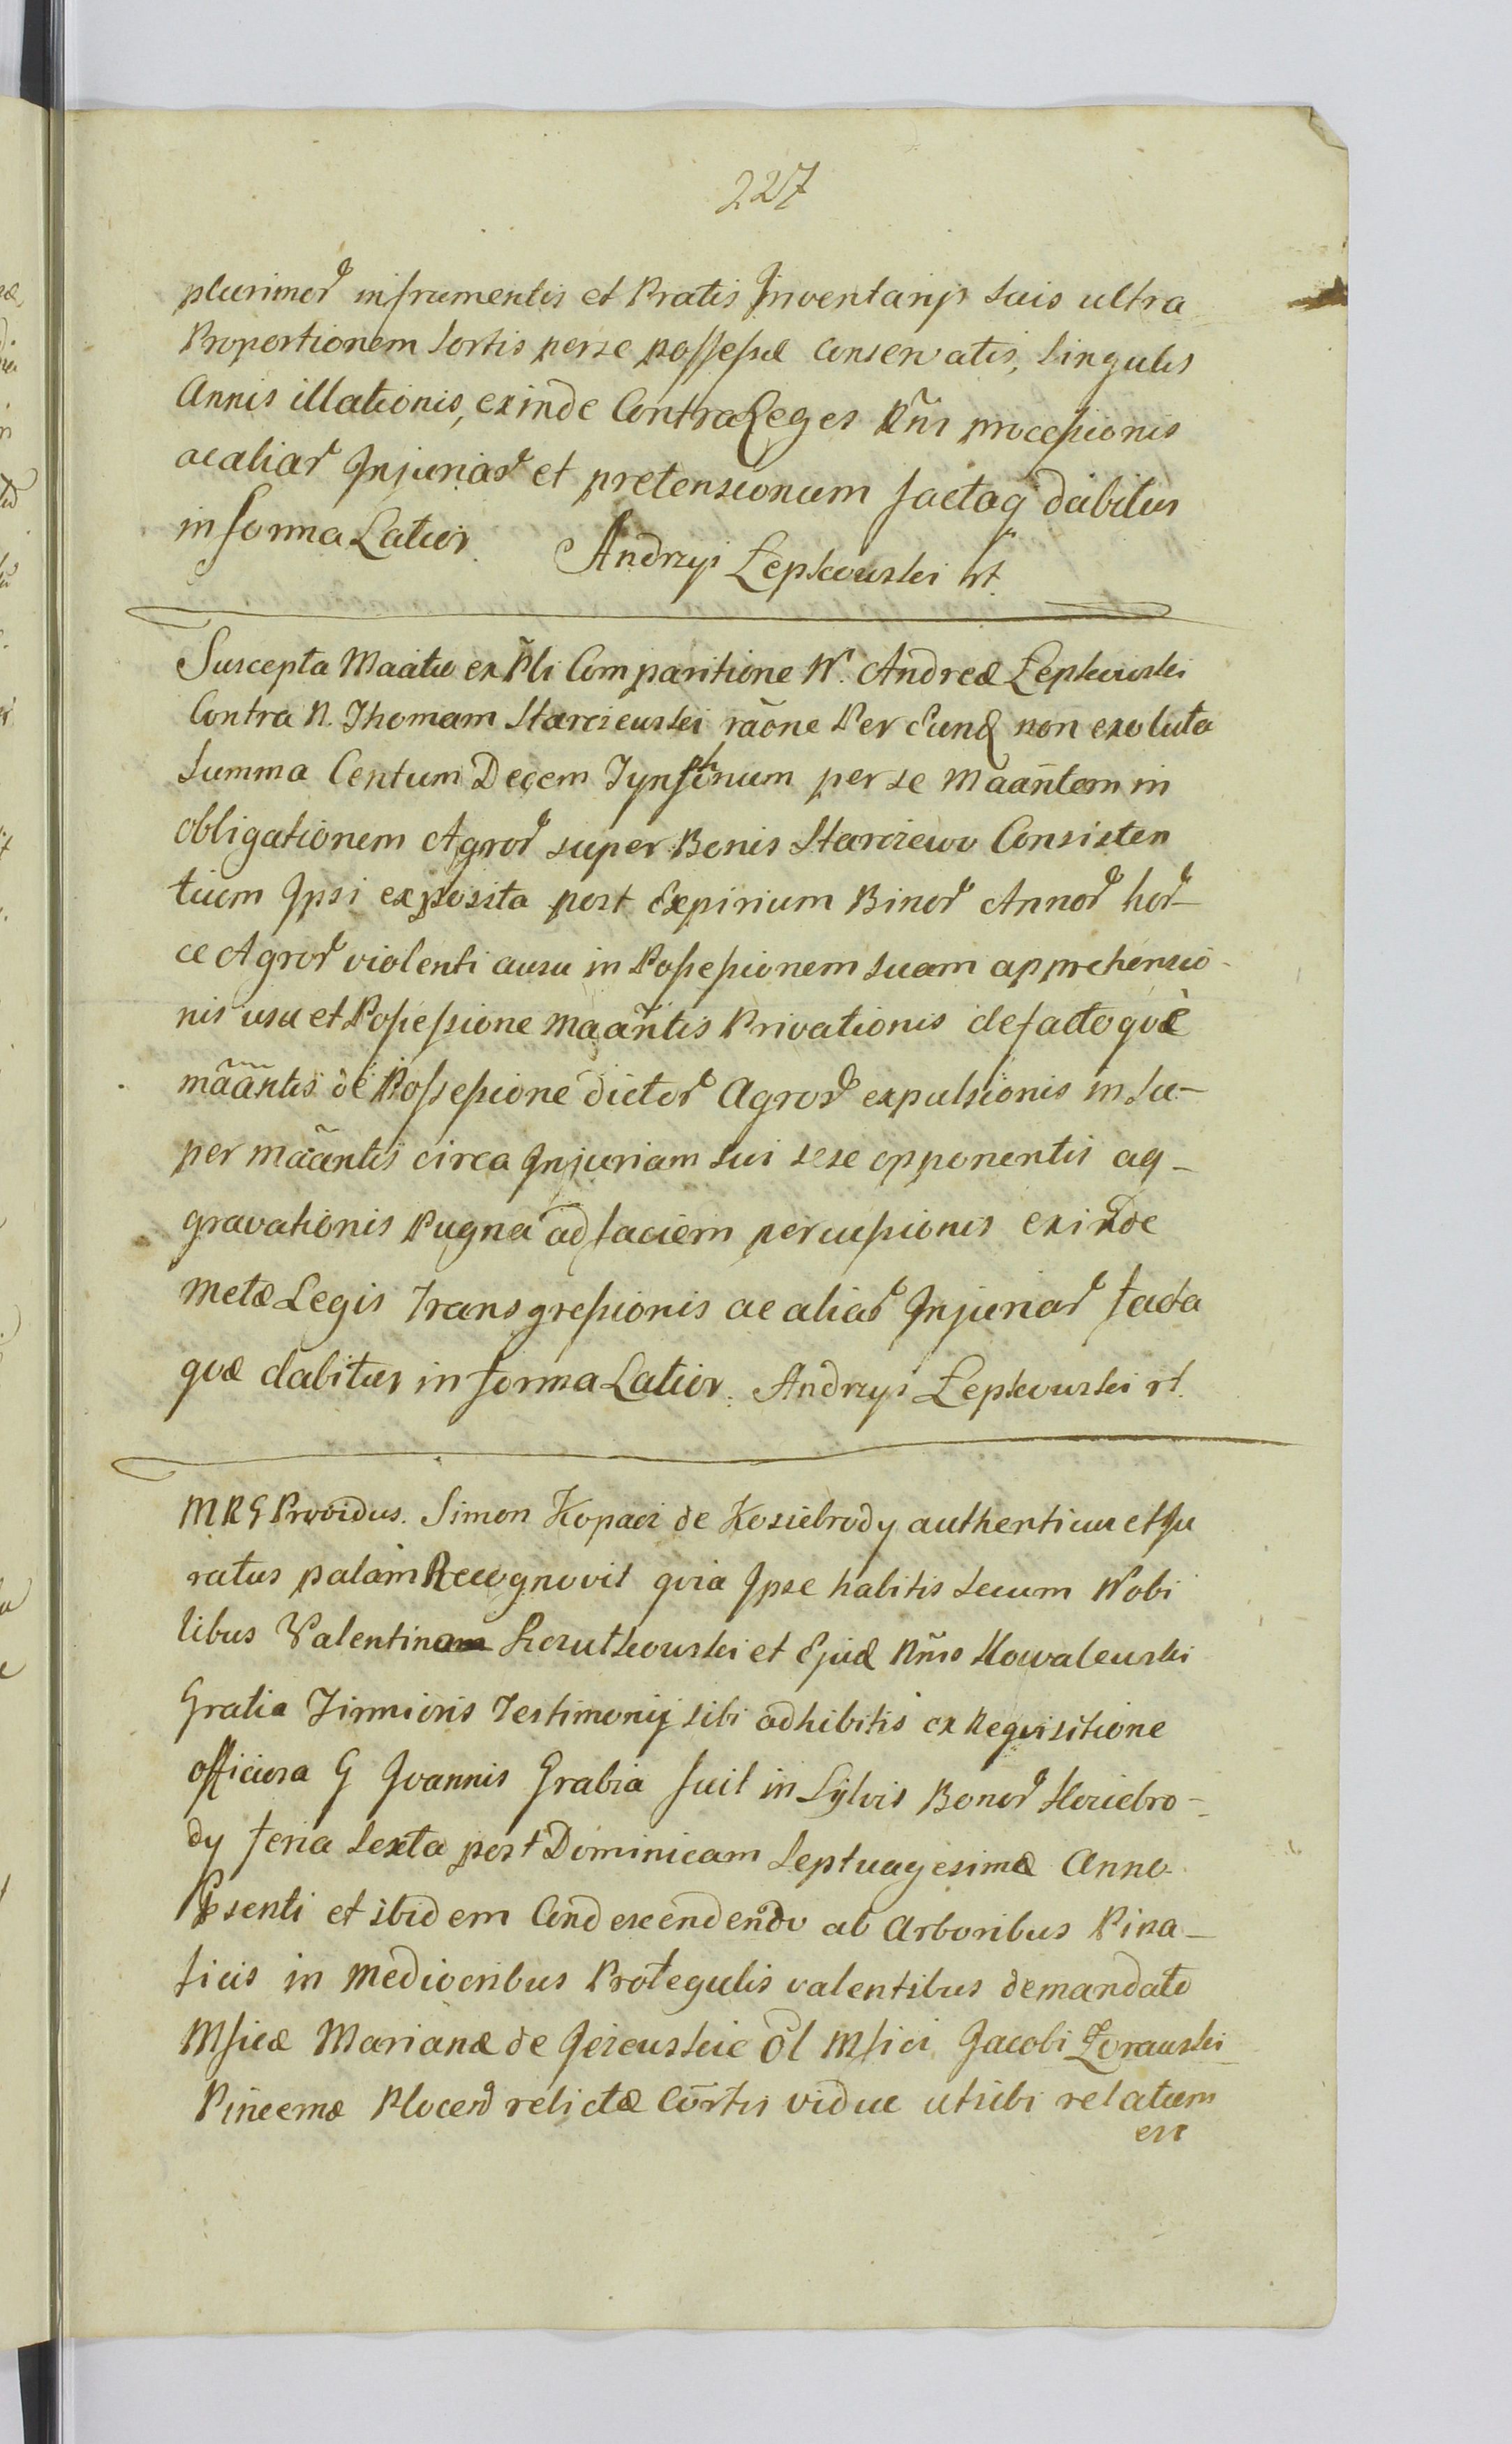 227
plurimor in frumentis et Pratis Inventarijs suis ultra
Proportionem Sortis per se possessae conservatis, singulis
Annis illationis, exinde Contra Leges Rñi processionis
ac aliar Injuriar et pretensionum factaq dabitur
in forma Latior Andrzyi Łepkowski rt.
Suscepta Maãtio ex Pli Comparitione N. Andreæ Łepkowski
Contra N. Thomam Starczewski rãone Per Eund non exoluta
Summa Centum Decem Tynphonum per se Maañtem in
obligationem Agror super Bonis Starczewo Consisten
tium Ipsi exposita post Expirium Binor Annor hor-
ce Agror violenti ausu in Possessionem suam apprehensio-
nis usu et Possessione Maañtis Privationis defacto quæ
mããntis de Possessione dictor Agror expulsionis insu-
per mããntis circa Injuriam sui sese opponentis ag-
gravationis Pugna ad faciem percussionis exinde
Metæ Legis Transgressionis ac aliar Injuriar facta
quæ dabitur in forma Latior. Andrzyi Łepkowski rt.
MRG Providus. Simon Kopacz de Koziebrody authenticus et Ju
ratus palam Recognovit quia Ipse habitis secum Nobi
libus Valentinam Szczutkowski et Ejud Nñis Kowalewski
Gratia Firmioris Testimonij sibi adhibitis ex Requisitione
officiosa G Joannis Grabia fuit in Sylvis Bonor Koziebro-
dy feria Sexta post Dominicam Septuagesimæ Anno
Psenti et ibidem Condescendendo ab Arboribus Pina-
ticis in Mediocribus Protegulis valentibus de mandato
Mficæ Marianæ de Jeżewskie õl Mfici Jacobi Zorawski
Pincernæ Plocen relictæ Cõrtis viduæ uti sibi relatum
est